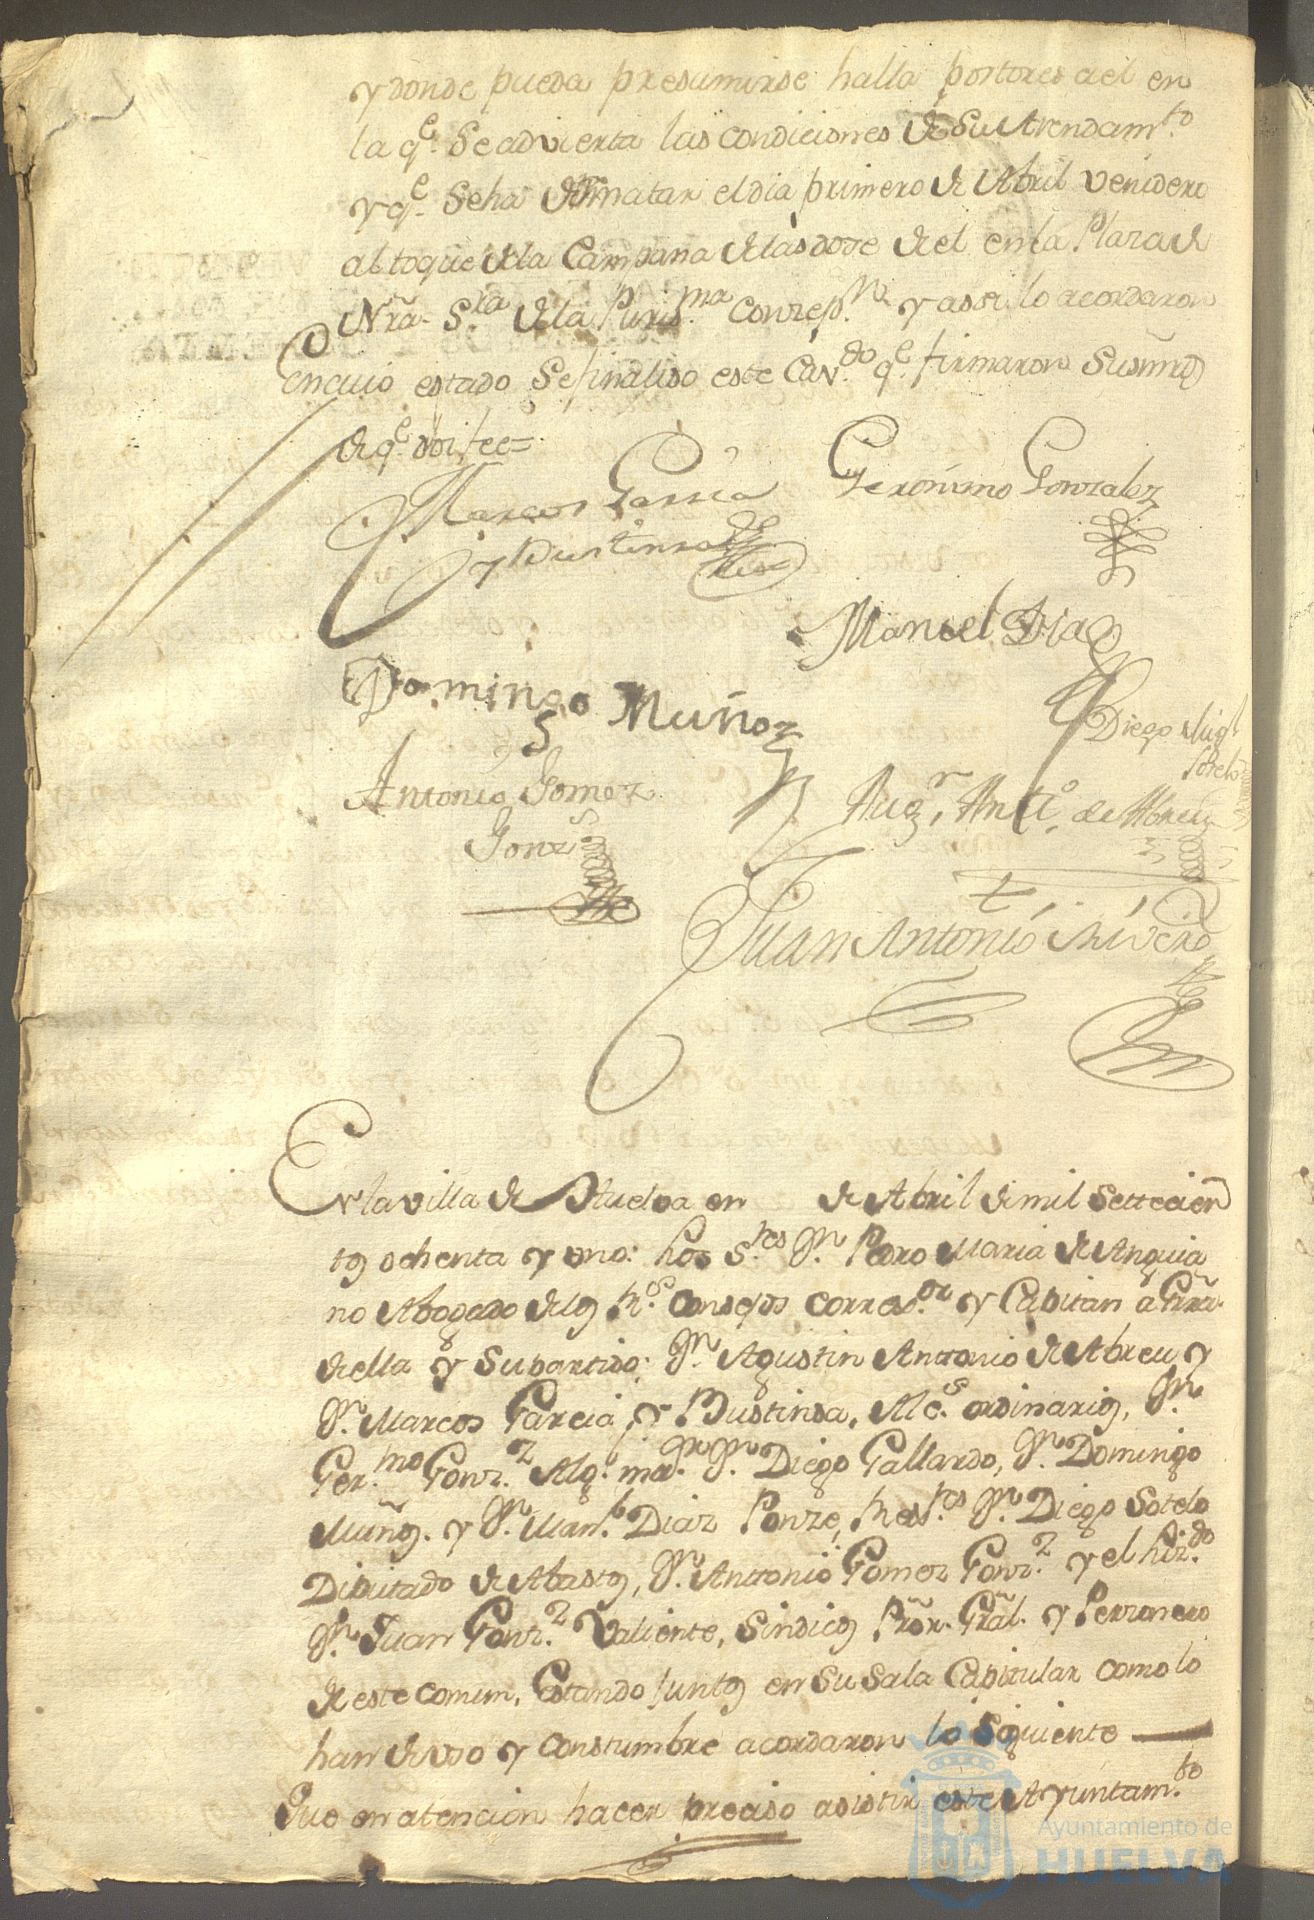 y donde pueda presumirse halla postores a el en
la q.e Se advierta las condiciones de Su Arrendam.to
y q.e Seha de Rematar el dia primero de Abril venidero
al toque de la Campana de las doze de el en la Plaza de
Nrã. S.ra de la Puris.ma Conzep.n y assi lo acordaron
En cuio estado Se finaliso este Cav.do q.e firmaron Sus mrds
de q.e doi fee=
Marcos Garcia
y Bustinza
Geronimo Gonzalez
Manuel Diaz
Domingo Muñoz
Diego Migl
Sotelo
Antonio Gomez
Gonz.s
Aug.n Ant.o de Abreu
Juan Antonio Rivero
En la villa de Huelva en de Abril de mil Settecien
tos ochenta y uno: Los S.res D.n Pedro Maria de Anguia
no Abogado de los R.s Consejos Correg.or y Capitan á Grã.
de ella y Su partido: D.n Agustin Antonio de Abreu y
D.n Marcos Garcia, y Bustinsa, Alc.s ordinarios, D.n
Ger.mo Gonz.z Alg.l mõr. D.n Diego Gallardo, D.n Domingo
Muños. y D.n Man.l Diaz Ponze, Reg.res D.n Diego Sotelo
Diputado de Abastos, D.n Antonio Gomez Gonz.z y el Liz.do
D.n Juan Gonz.z Valiente, Sindicos Prõr. Grãl. y Perzonero
de este comun, Estando juntos en Su Sala Capitular como lo
han de uso y constumbre acordaron lo Siguiente
Que en atencion hacer preciso asistir este Ayuntam.to
Ayuntamiento de
HUELVA